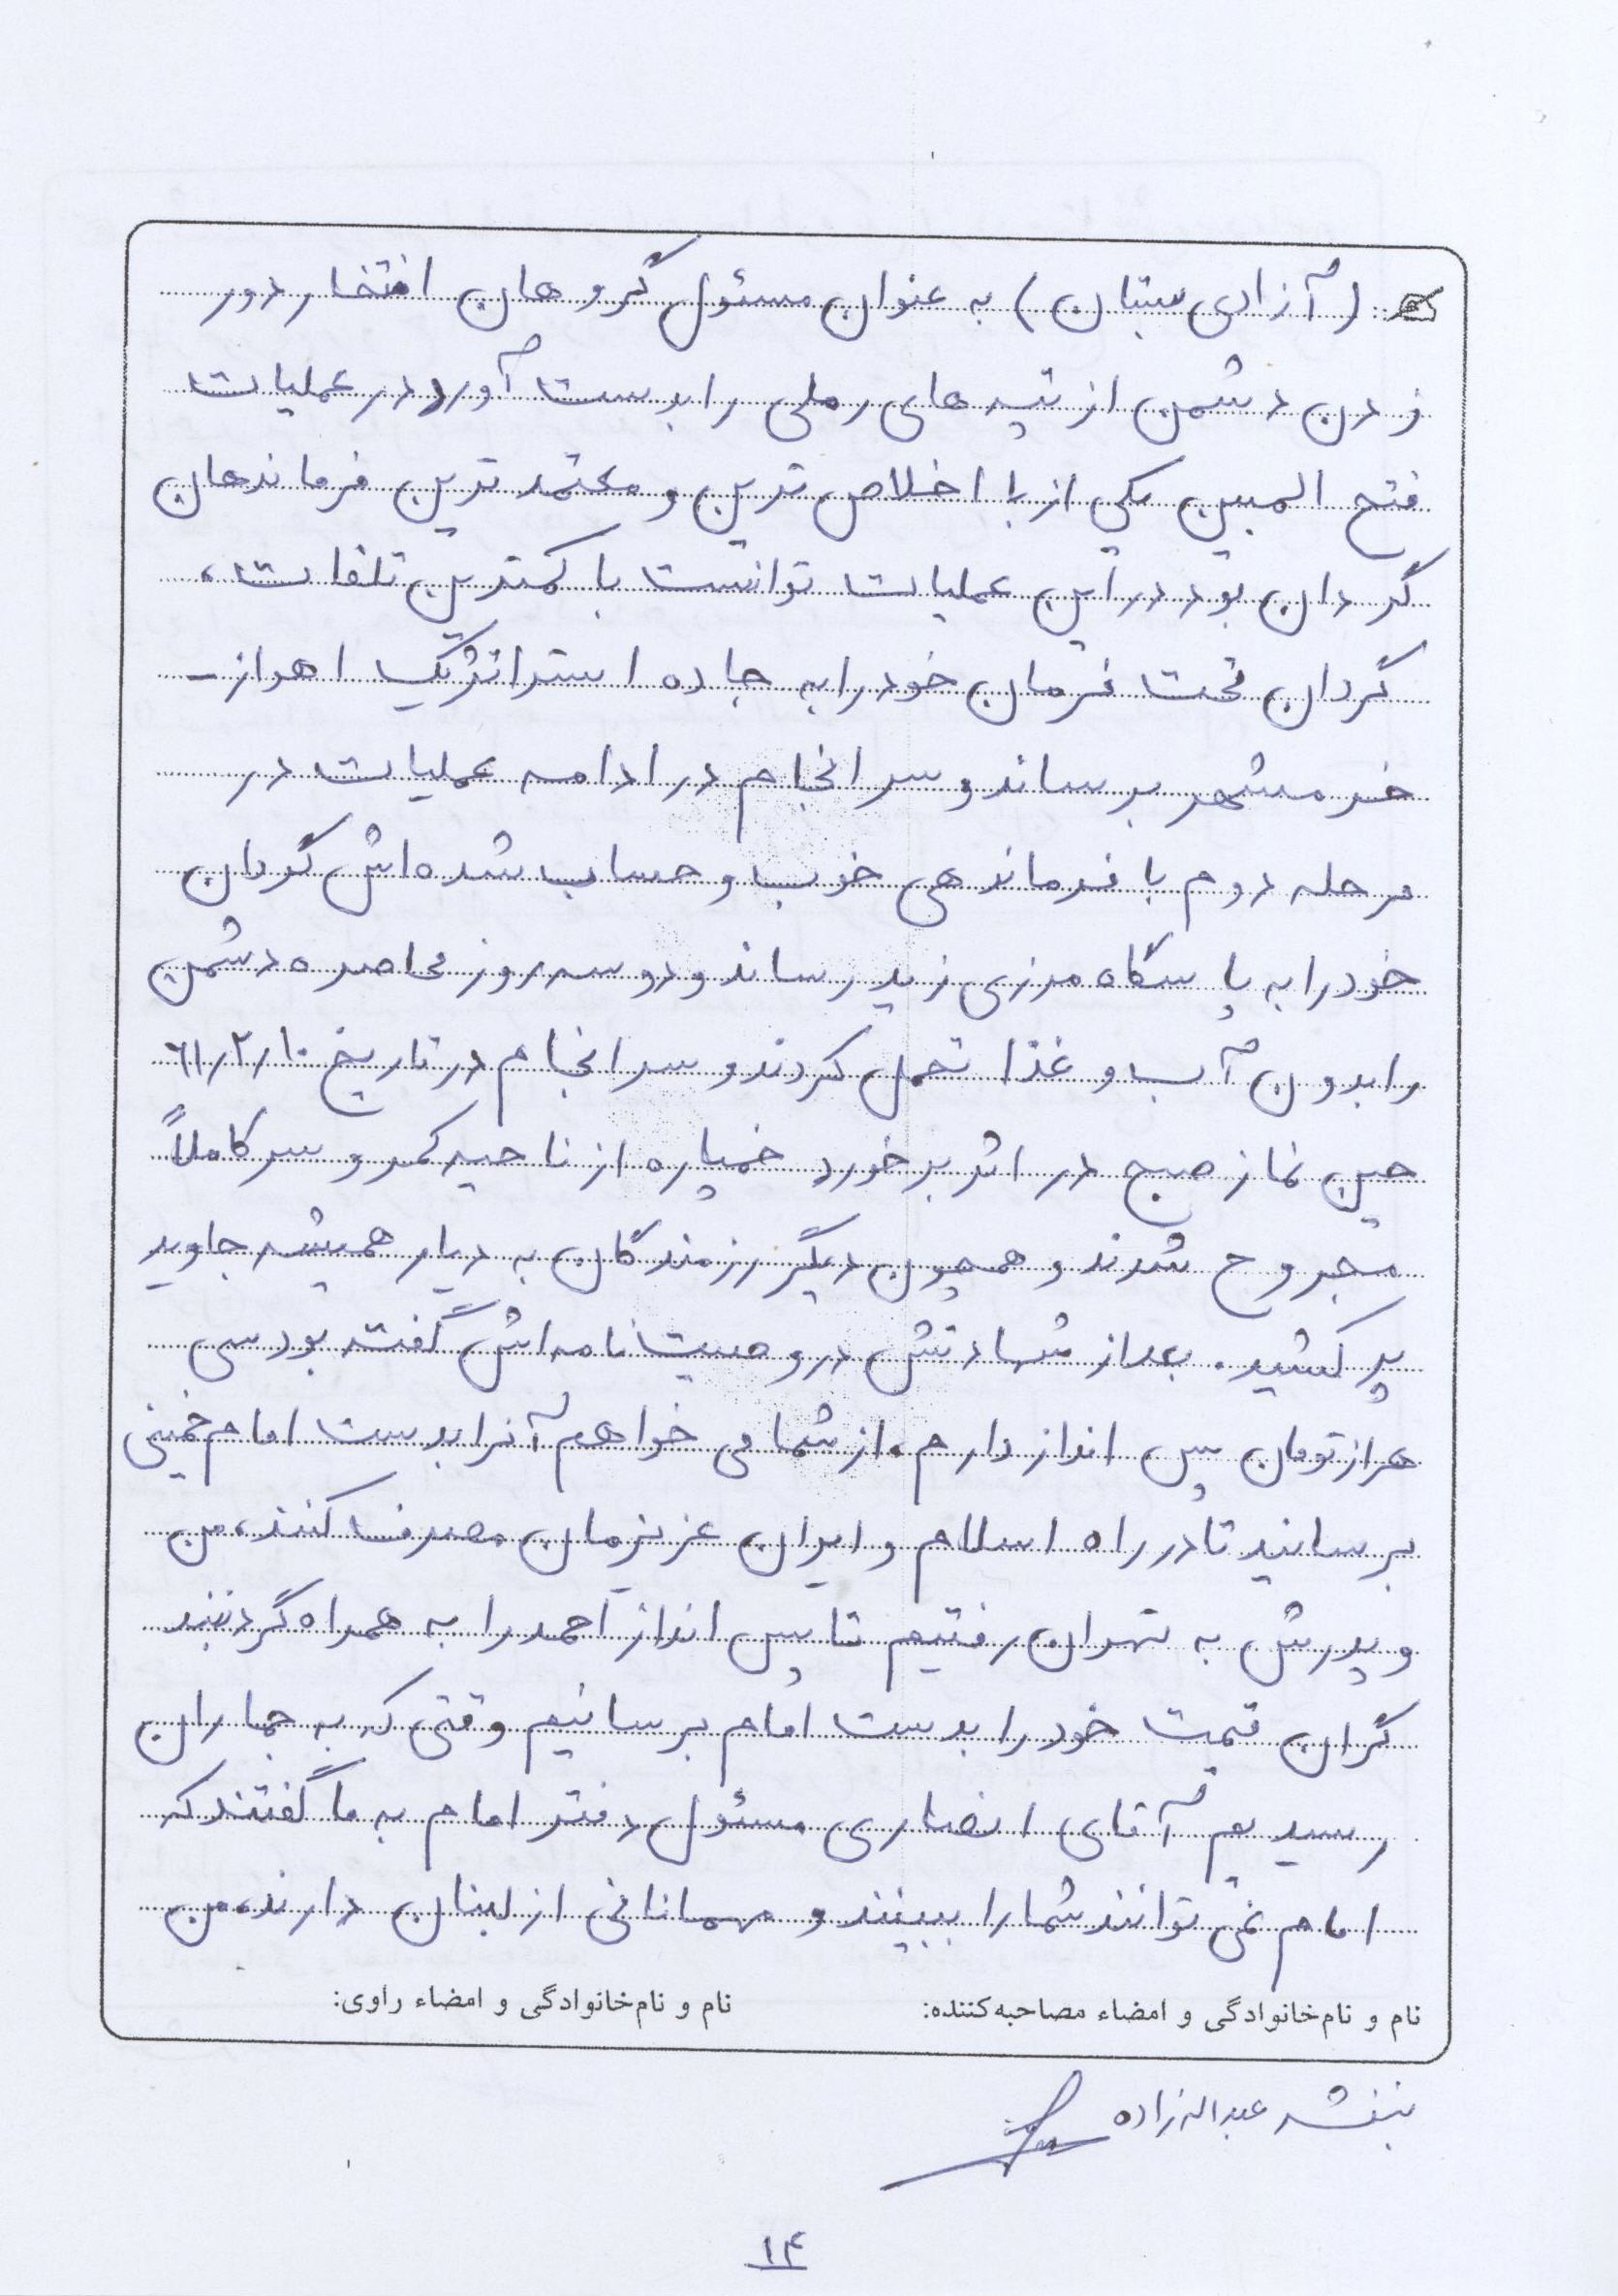 (آزادی بستان) به عنوان مسئول گروهان افتخار دور
زدن دشمن از تپه های رملی را بدست آورد در عملیات
فتح المبین یکی از با اخلاص ترین و معتمد ترین فرماندهان
گردان بود در این عملیات توانست با کمترین تلفات،
گردان تحت فرمان خود را به جاده استراتژیک اهواز -
خرمشهر برساند و سرانجام در ادامه عملیات در
مرحله دوم با فرماندهی خوب و حساب شده اش گردان
خود را به پاسگاه مرزی زید رساند و دو سه روز محاصره دشمن
را بدون آب و غذا تحمل کردند و سرانجام در تاریخ ۶۱/۲/۱۰
حین نماز صبح در اثر برخورد خمپاره از ناحیه کمر و سر کاملاً
مجروح شدند و همچون دیگر رزمندگان به دیار همیشه جاوید
پر کشید. بعد از شهادتش در وصیت نامه اش گفته بود سی
هزار تومان پس انداز دارم. از شما می خواهم آنرا بدست امام خمینی
برسانید تا در راه اسلام و ایران عزیزمان مصرف کنند، من
و پدرش به تهران رفتیم تا پس انداز احمد را به همراه گردنبند
گران قیمت خود را بدست امام برسانیم وقتی که به جماران
رسیدیم آقای انصاری مسئول دفتر امام به ما گفتند که
امام نمی توانند شما را ببینند و مهمانانی از لبنان دارند، من
نام و نام‌خانوادگی و امضاء مصاحبه‌کننده: نام و نام‌خانوادگی و امضاء راوی:
بنفشه عبداله زاده
۱۴